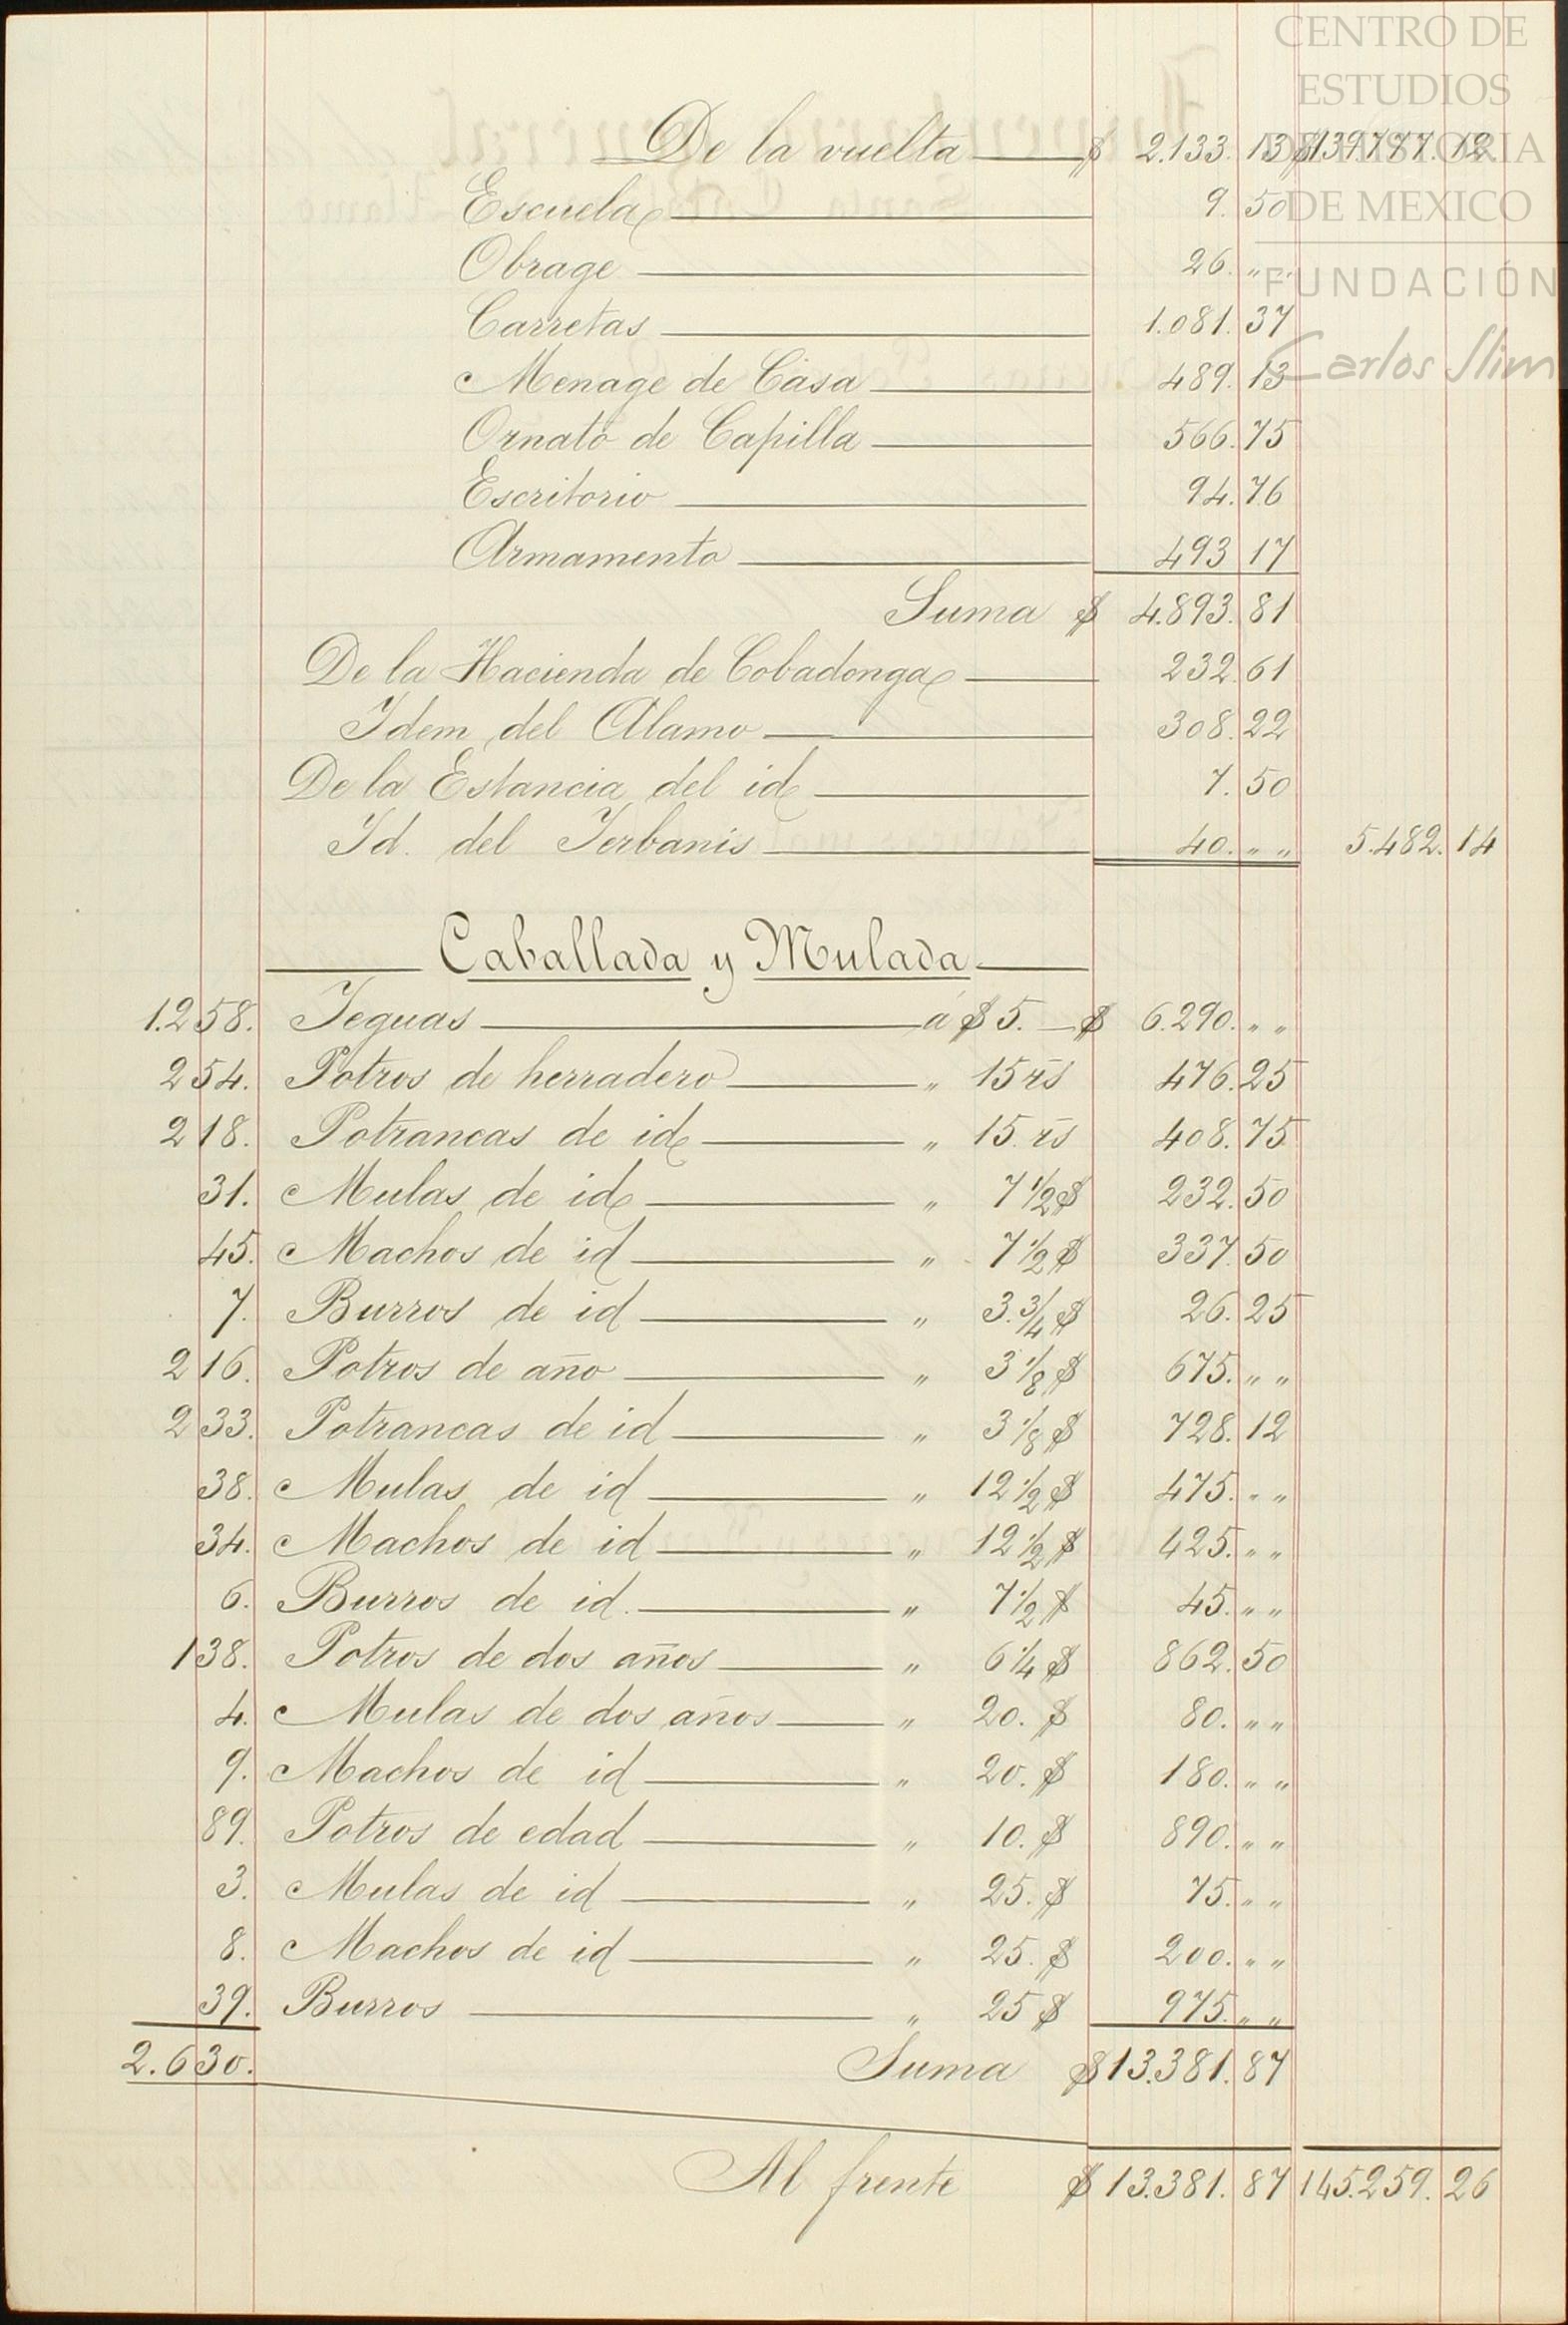 CENTRO DE
ESTUDIOS
DE HISTORIA
DE MEXICO
FUNDACIÓN
Carlos Slim
De la vuelta $ 2.133. 13 $139777. 12.
Escuela 9. 50
Obrage 26. " "
Carretas 1.081. 37
Menage de Casa 489. 13
Ornato de Capilla 566. 75
Escritorio 94. 76
Armamento 493 17
Suma $ 4.893. 81
De la Hacienda de Cobadonga 232. 61
Idem del Alamo 308. 22
De la Estancia del id 7. 50
Id. del Yerbanis 40. " " 5.482. 14
Caballada y Mulada
1.258. Yeguas á $ 5. $ 6.290. " "
254. Potros de herradero " 15 rs 476. 25
218. Potrancas de id " 15. rs 408. 75
31. Mulas de id " 7 1/2 $ 232. 50
45. Machos de id " 7 1/2 $ 337. 50
7. Burros de id " 3. 3/4 $ 26. 25
216. Potros de año " 3 1/8 $ 675. " "
233. Potrancas de id " 3 1/8 $ 728. 12
38. Mulas de id " 12 1/2 $ 475. " "
34. Machos de id " 12 1/2 $ 425. " "
6. Burros de id. " 7 1/2 $ 45. " "
138. Potros de dos años " 6 1/4 $ 862. 50
4. Mulas de dos años " 20. $ 80. " "
9. Machos de id " 20. $ 180. " "
89. Potros de edad " 10. $ 890. " "
3. Mulas de id " 25. $ 75. " "
8. Machos de id " 25. $ 200. " "
39. Burros " 25 $ 975. " "
2.630. Suma $13.381. 87
Al frente $ 13.381. 87 145.259. 26